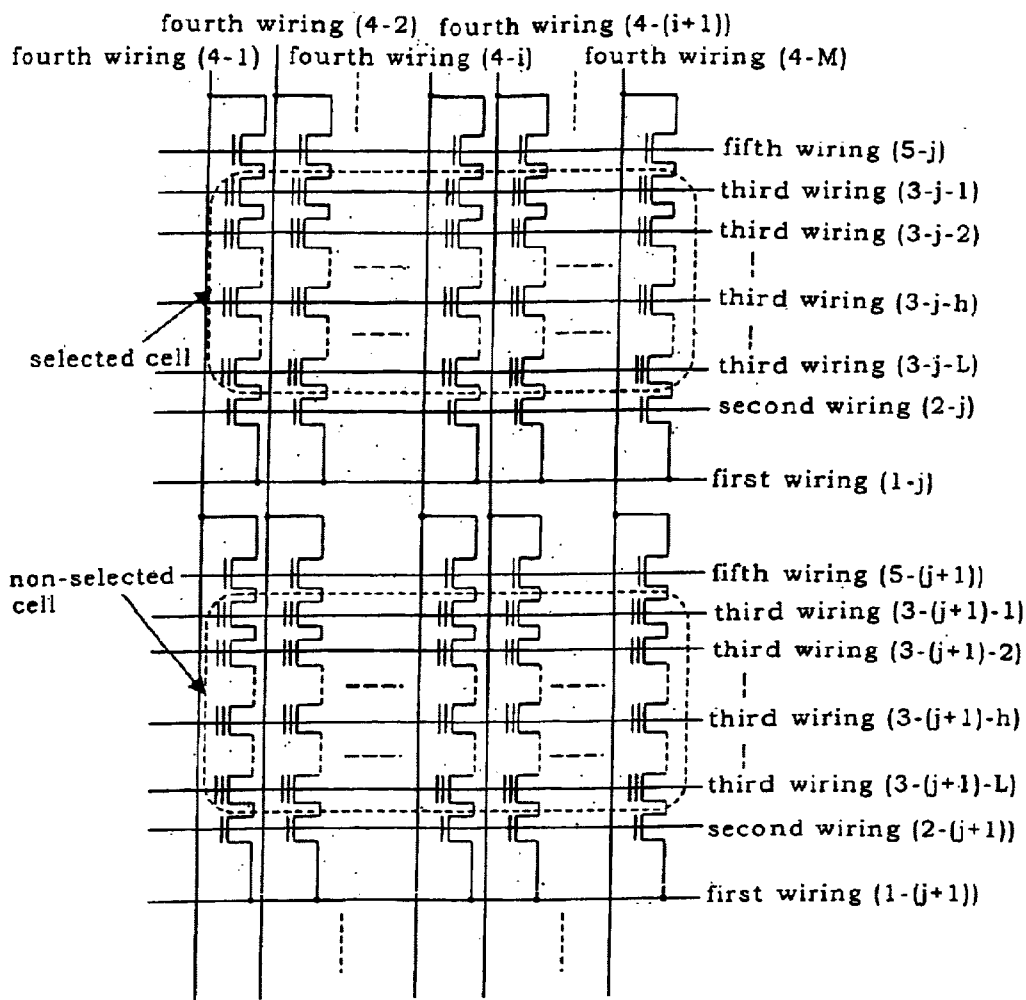 fourth wiring (4-2) fourth wiring (4-(i+1))
fourth wiring (4-1) fourth wiring (4-i) fourth wiring (4-M)
fifth wiring (5-j)
third wiring (3-j-1)
third wiring (3-j-2)
third wiring (3-j-h)
selected cell
third wiring (3-j-L)
second wiring (2-j)
first wiring (1-j)
non-selected
cell
fifth wiring (5-(j+1))
third wiring (3-(j+1)-1)
third wiring (3-(j+1)-2)
third wiring (3-(j+1)-h)
third wiring (3-(j+1)-L)
second wiring (2-(j+1))
first wiring (1-(j+1))